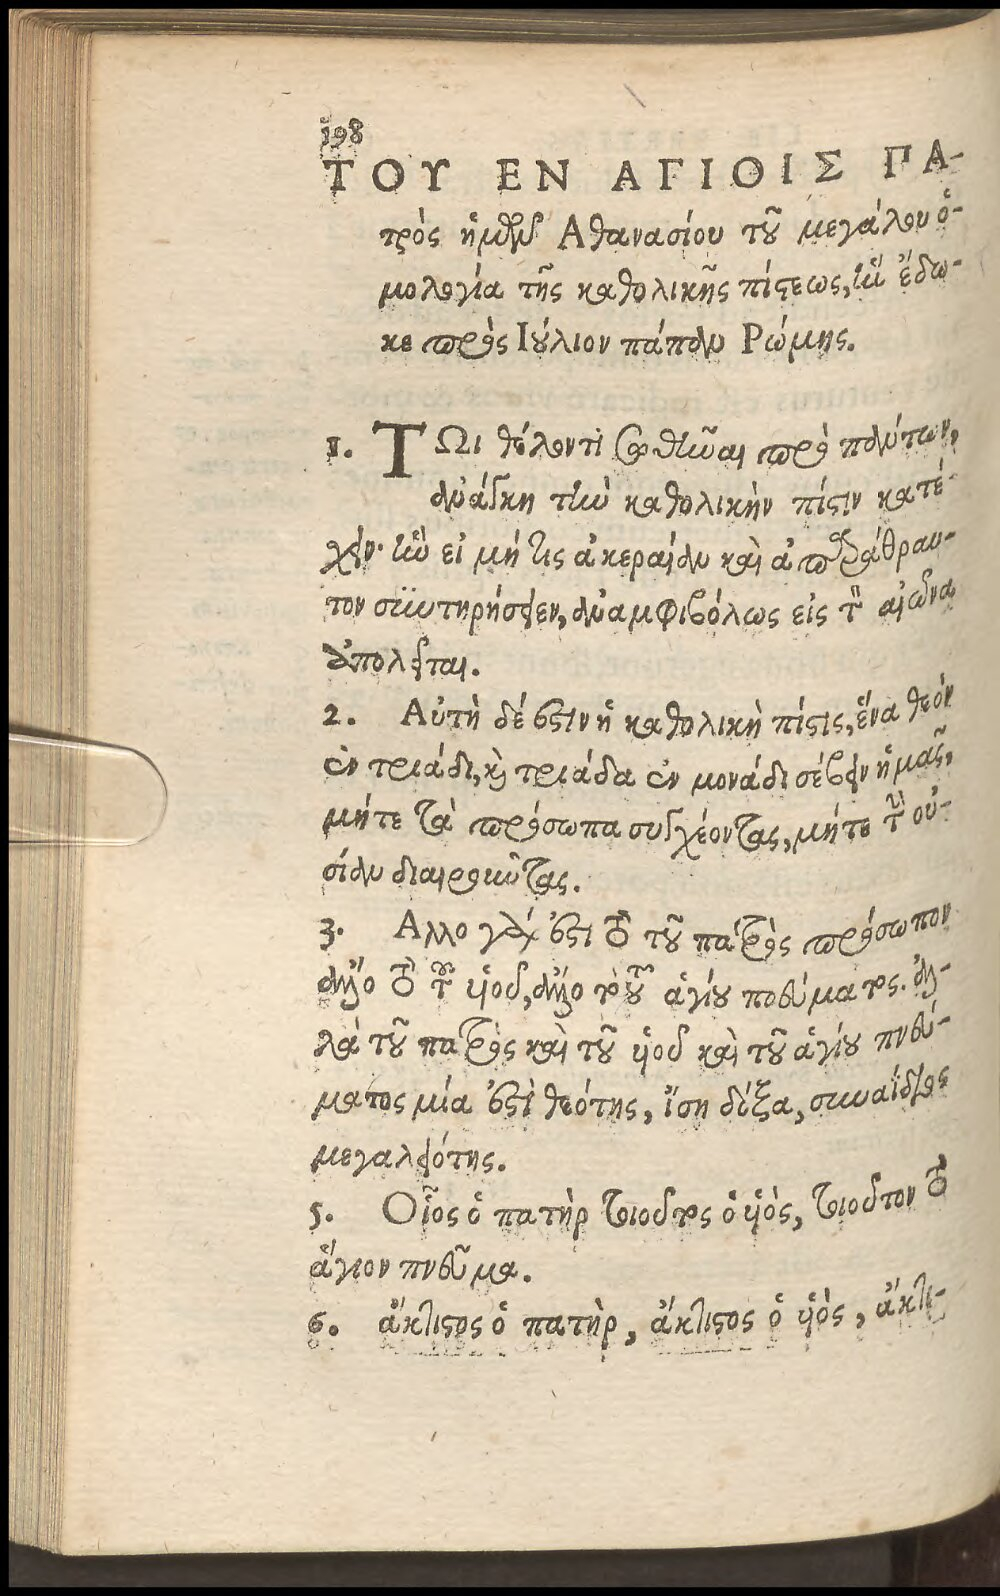 198
ΤΟΥ ΕΝ ΑΓΙΟΙΣ ΠΑ-
τρὸς ἡμῶν Αθανασίου τοῦ μεγάλου ὁ-
μολογία τῆς καθολικῆς πίστεως, ἣν ἔδω-
κε πρὸς Ιούλιον πάπαν Ρώμης.
1. ΤΩι θέλοντι σωθῆναι πρὸ πάντων,
ἀνάγκη τὴν καθολικὴν πίστιν κατέ-
χειν· ἣν εἰ μή τις ἀκεραίαν καὶ ἀπαράθραυ-
τον συντηρήσειεν, ἀναμφιβόλως εἰς τὸν αἰῶνα
ἀπολεῖται.
2. Αὐτὴ δέ ἐστιν ἡ καθολικὴ πίστις, ἕνα θεὸν
ἐν τριάδι, καὶ τριάδα ἐν μονάδι σέβειν ἡμᾶς,
μήτε τὰ πρόσωπα συγχέοντας, μήτε τὴν οὐ-
σίαν διαιροῦντας.
3. Αλλο γάρ ἐστι τὸ τοῦ πατρὸς πρόσωπον
ἄλλο τὸ τοῦ υἱοῦ, ἄλλο τὸ τοῦ ἁγίου πνεύματος. ἀλ-
λὰ τοῦ πατρὸς καὶ τοῦ υἱοῦ καὶ τοῦ ἁγίου πνεύ-
ματος μία ἐστὶ θεότης, ἴση δόξα, συναΐδιος
μεγαλειότης.
5. Οἷος ὁ πατὴρ τιοῦτος ὁ υἱὸς, τιοῦτον τὸ
ἅγιον πνεῦμα.
6. ἄκτιστος ὁ πατὴρ, ἄκτιστος ὁ υἱὸς, ἄκτι-